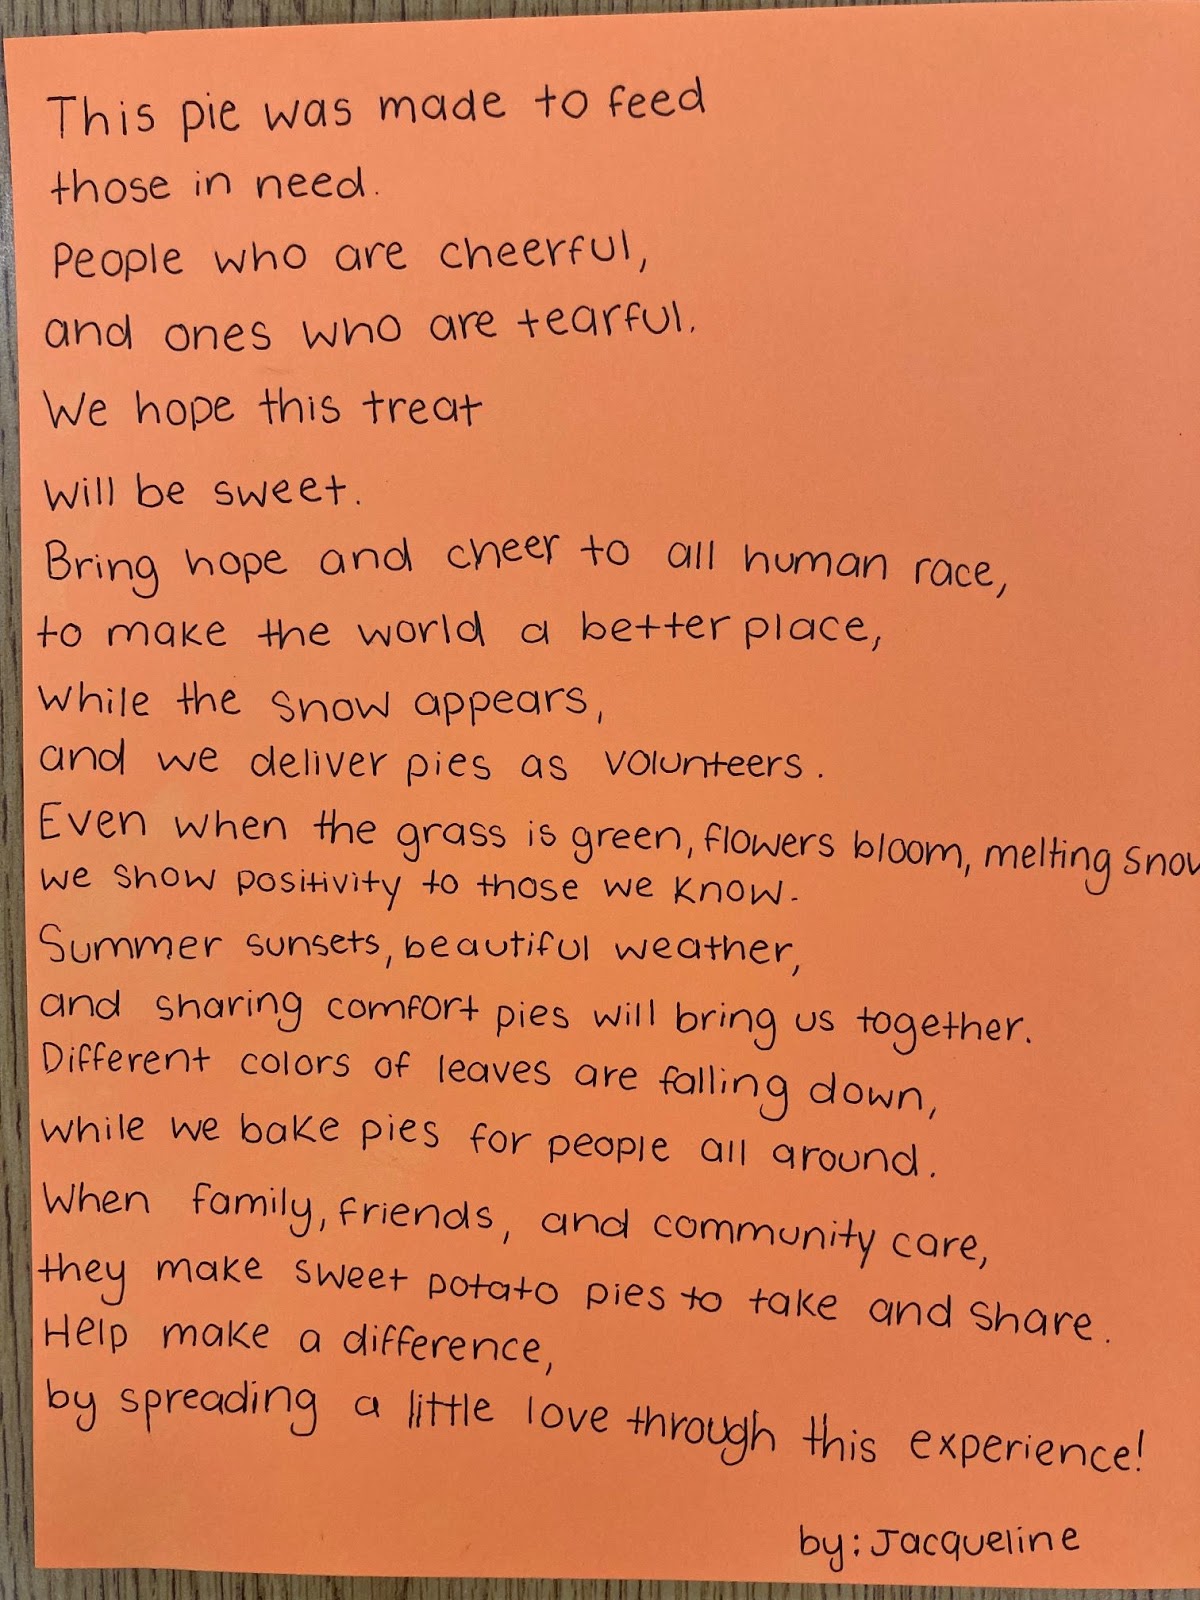 This pie was made to feed
those in need.
People who are cheerful,
and ones who are tearful.
We hope this treat
will be sweet.
Bring hope and cheer to all human race,
to make the world a better place,
while the snow appears,
and we deliver pies as volunteers.
Even when the grass is green, flowers bloom, melting snow
we show positivity to those we know.
Summer sunsets, beautiful weather,
and sharing comfort pies will bring us together.
Different colors of leaves are falling down,
while we bake pies for people all around.
When family, friends, and community care,
they make sweet potato pies to take and share.
Help make a difference,
by spreading a little love through this experience!
by: Jacqueline